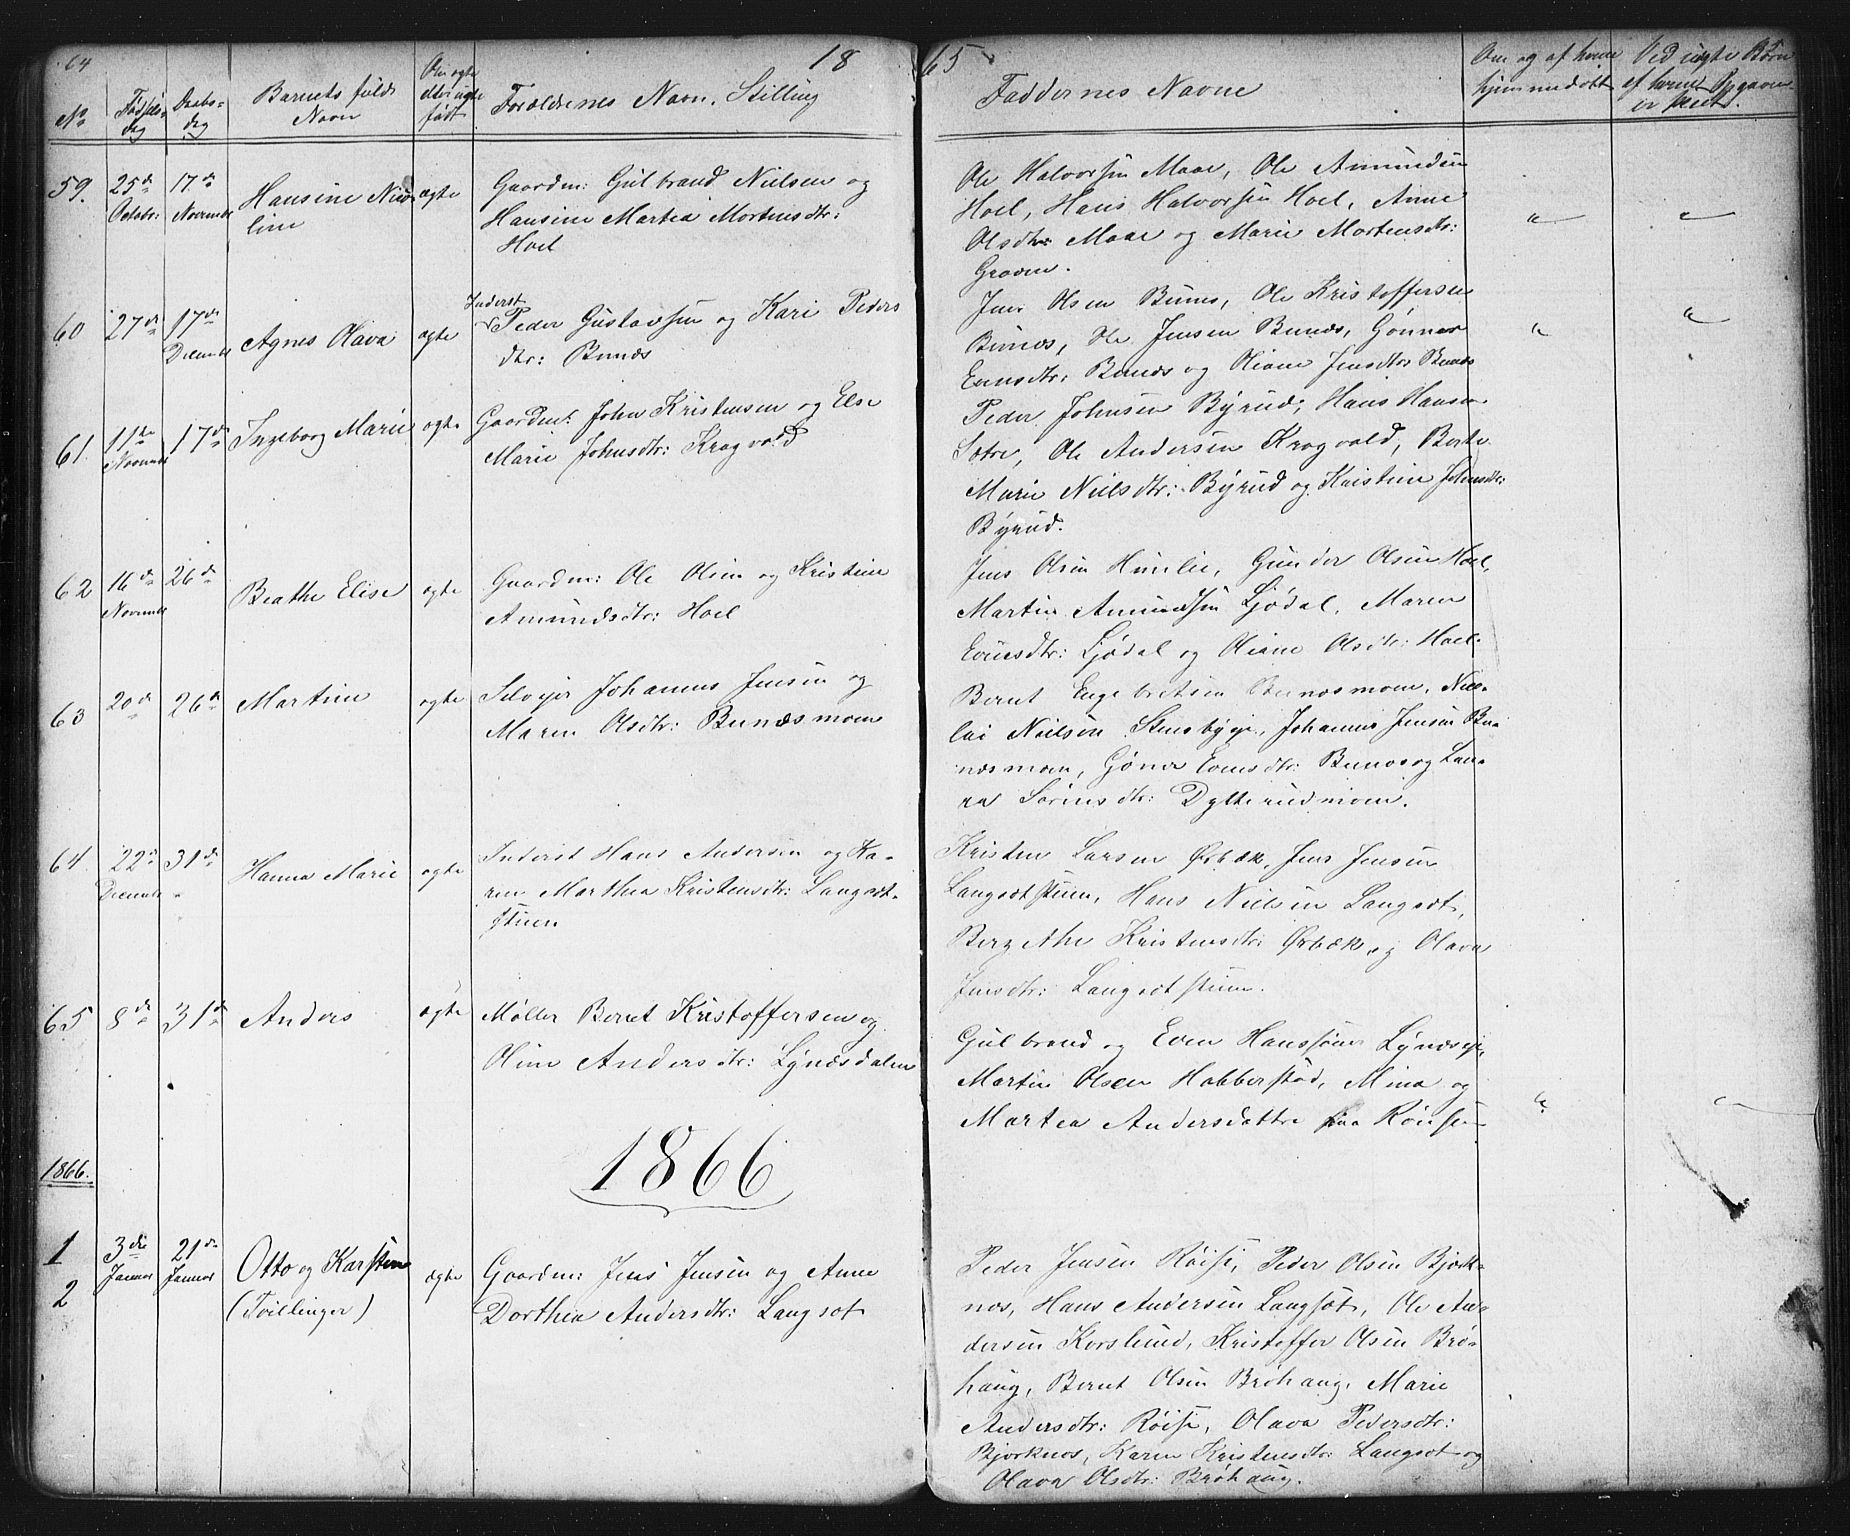 64
18
65
No
Fødsels-
dag
Daabs-
dag
Barnets fulde
Navn
Om ægte
eller uægte
født
Forældrenes Navn, Stilling
Faddernes Navne
Om og af hvem
hjemmedøbt
Ved uægte Børn
af hvem Opgaven
er skeet.
59.
25de
Octobr:
17de
Novembr
Hansine Nico-
line
ægte
Gaardm: Gulbrand Nielsen og
Hansine Martea Mortensdtr:
Hoel
Ole Halvorsen Maar, Ole Amundsen
Hoel, Hans Halvorsen Hoel, Anne
Olsdtr: Maar og Marie Mortensdtr:
Graven.
60
27de
17de
Decembr
Agnes Olava
ægte
Inderst
Peder Gustavsen og Kari Peders
dtr: Bunæs
Jens Olsen Bunæs, Ole Kristoffersen
Bunæs, Ole Jensen Bunæs, Gønner
Evensdtr: Bunæs og Oliane Jensdtr: Bunæs
61.
11te
Novembr
17de
Ingeborg Marie
ægte
Gaardm: John Kristensen og Else
Marie Johnsdtr: Kragvald
Peder Johnsen Byrud, Hans Hansen
Sætre, Ole Andersen Kragvald, Berte
Marie Nielsdtr: Byrud og Kristine Johnsdtr:
Byrud.
62
16de
Novembr
26de
Beathe Elise
ægte
Gaardm: Ole Olsen og Kristine
Amundsdtr: Hoel
Jens Olsen Hunlie, Gunder Olsen Hoel,
Martin Amundsen Ljødal, Maren
Evensdtr: Ljødal og Oliane Olsdtr: Hoel.
63
20de
26de
Martin
ægte
Selvejer Johannes Jensen og
Maren Olsdtr: Bunæsmoen
Bernt Engebretsen Bunæsmoen, Nico-
lai Nielsen Stensbyeje, Johannes Jensen Bu-
næsmoen, Gøner Evensdtr: Bunæs og Lau-
ra Sørensdtr: Dytterudmoen.
64.
22de
Decembr
31de
Hanna Marie
ægte
Inderst Hans Andersen og Ka-
ren Marthea Kristensdtr: Langsæt-
stuen
Kristen Larsen Ørbæk, Jens Jensen
Langsætstuen, Hans Nielsen Langsæt,
Bergethe Kristensdtr: Ørbæk, og Olava
Jensdtr: Langsætstuen.
65
8de
31de
Anders
ægte
Møller Bernt Kristoffersen og
Oline Andersdtr: Lynæsdalen
Gulbrand og Even Hanssøner Lynæseje,
Martin Olsen Habberstad, Mina og
Martea Andersdattre paa Røise
1866.
1866
1
2
3die
Januar
21de
Januar
Otto og Karsten
(Tvillinger)
ægte
Gaardm: Jens Jensen og Anne
Dorthea Andersdtr: Langsæt
Peder Jensen Røise, Peder Olsen Bjørk-
næs, Hans Andersen Langsæt, Ole An-
dersen Korslund, Kristoffer Olsen Brø-
haug, Bernt Olsen Brøhaug, Marie
Andersdtr: Røise, Olava Pedersdtr:
Bjørknæs, Karen Kristensdtr: Langsæt og
Olava Olsdtr: Brøhaug.